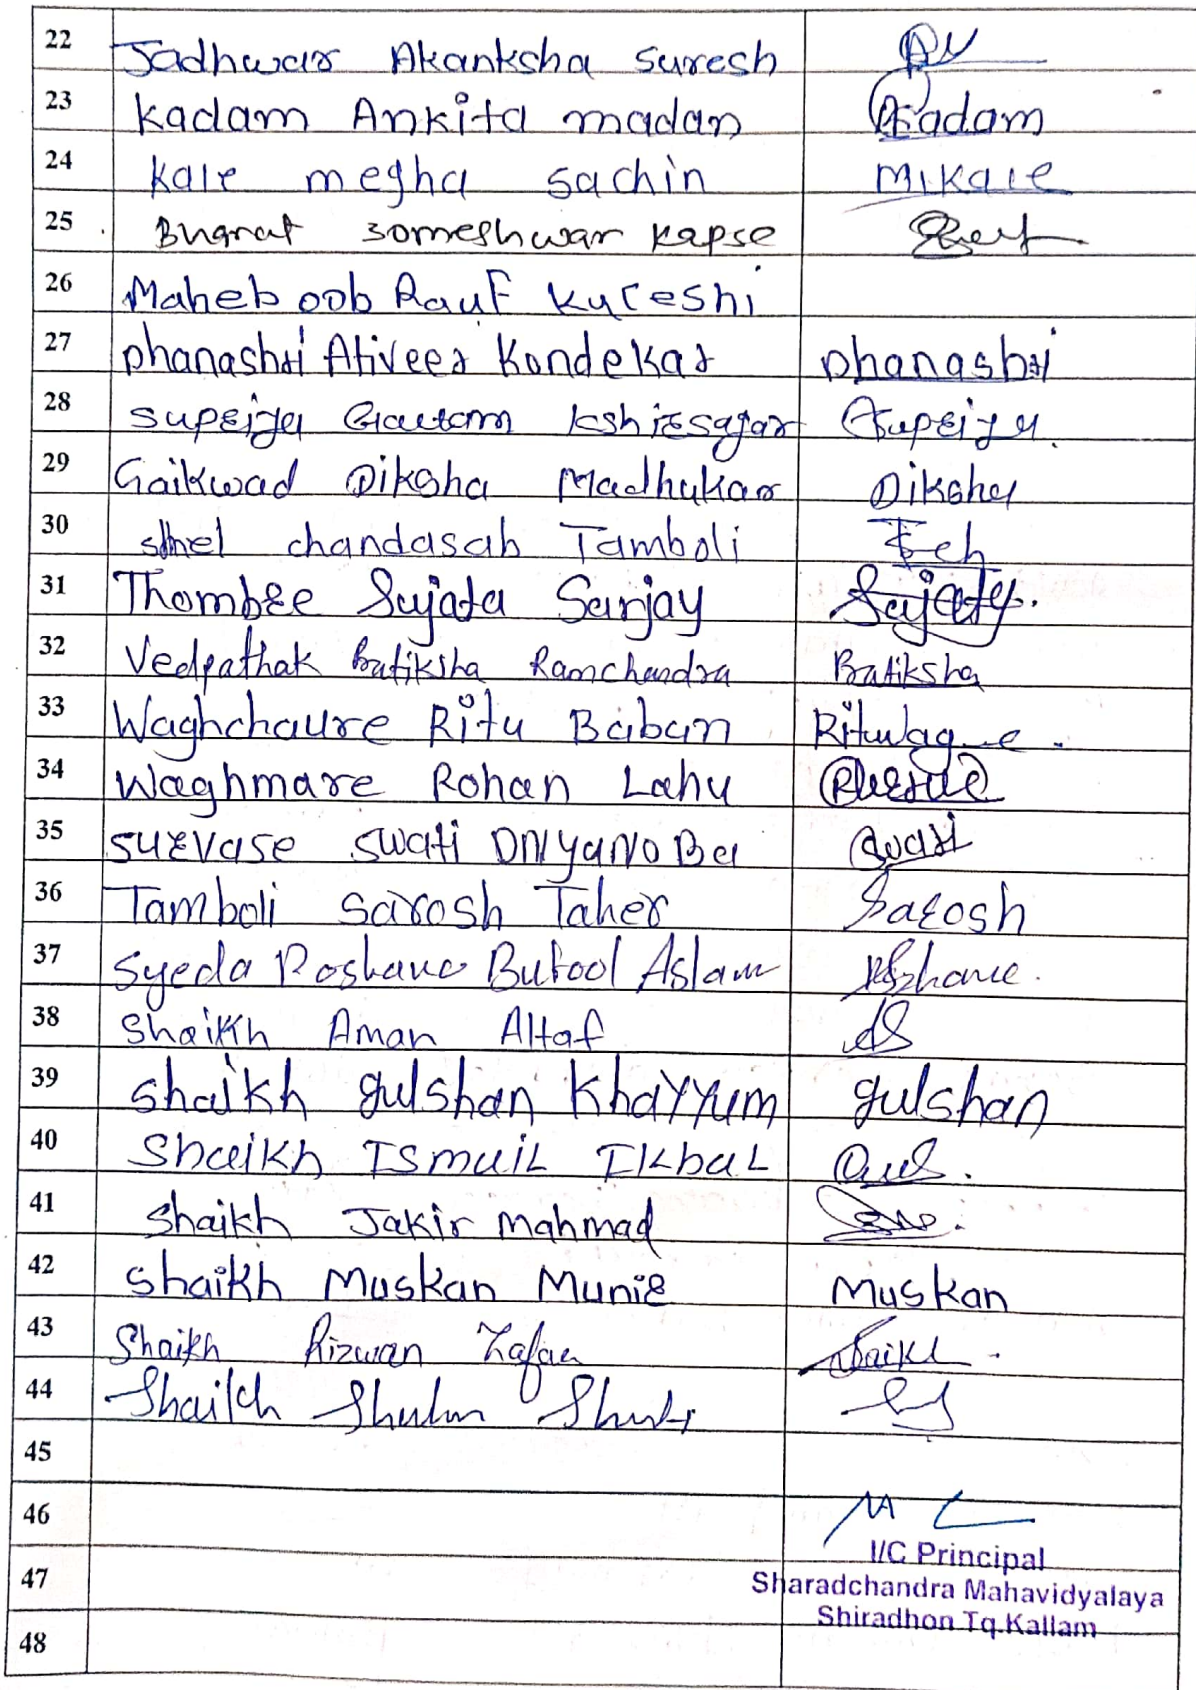 22 Jadhwar Akanksha Suresh
23 Kadam Ankita madan Kadam
24 Kale megha sachin M.kale
25 Bharat someshwar kapse
26 Maheboob Rauf Kureshi
27 Dhanashri Ativeer Kondekar Dhanashri
28 Supriya Gautam kshirsagar Supriya
29 Gaikwad Diksha Madhukar Diksha
30 chandasab Tamboli
31 Thombre Sujata Sanjay Sujata.
32 Vedpathak Pratiksha Ramchandra Pratiksha
33 Waghchaure Ritu Baban
34 Waghmare Rohan Lahu
35 Survase Swati DNyaNoBa Swati
36 Tamboli Sarosh Taher Sarosh
37 Syeda Roshane Butool Aslam
38 Shaikh Aman Altaf
39 Shaikh gulshan Khayyum gulshan
40 Shaikh ISmaiL IKbaL
41 Shaikh Jakir Mahmad
42 Shaikh Muskan Munir Muskan
43 Shaikh Rizwan Shaikh
44 Shaikh
45
46
I/C Principal
47
Sharadchandra Mahavidyalaya
Shiradhon Tq.Kallam
48